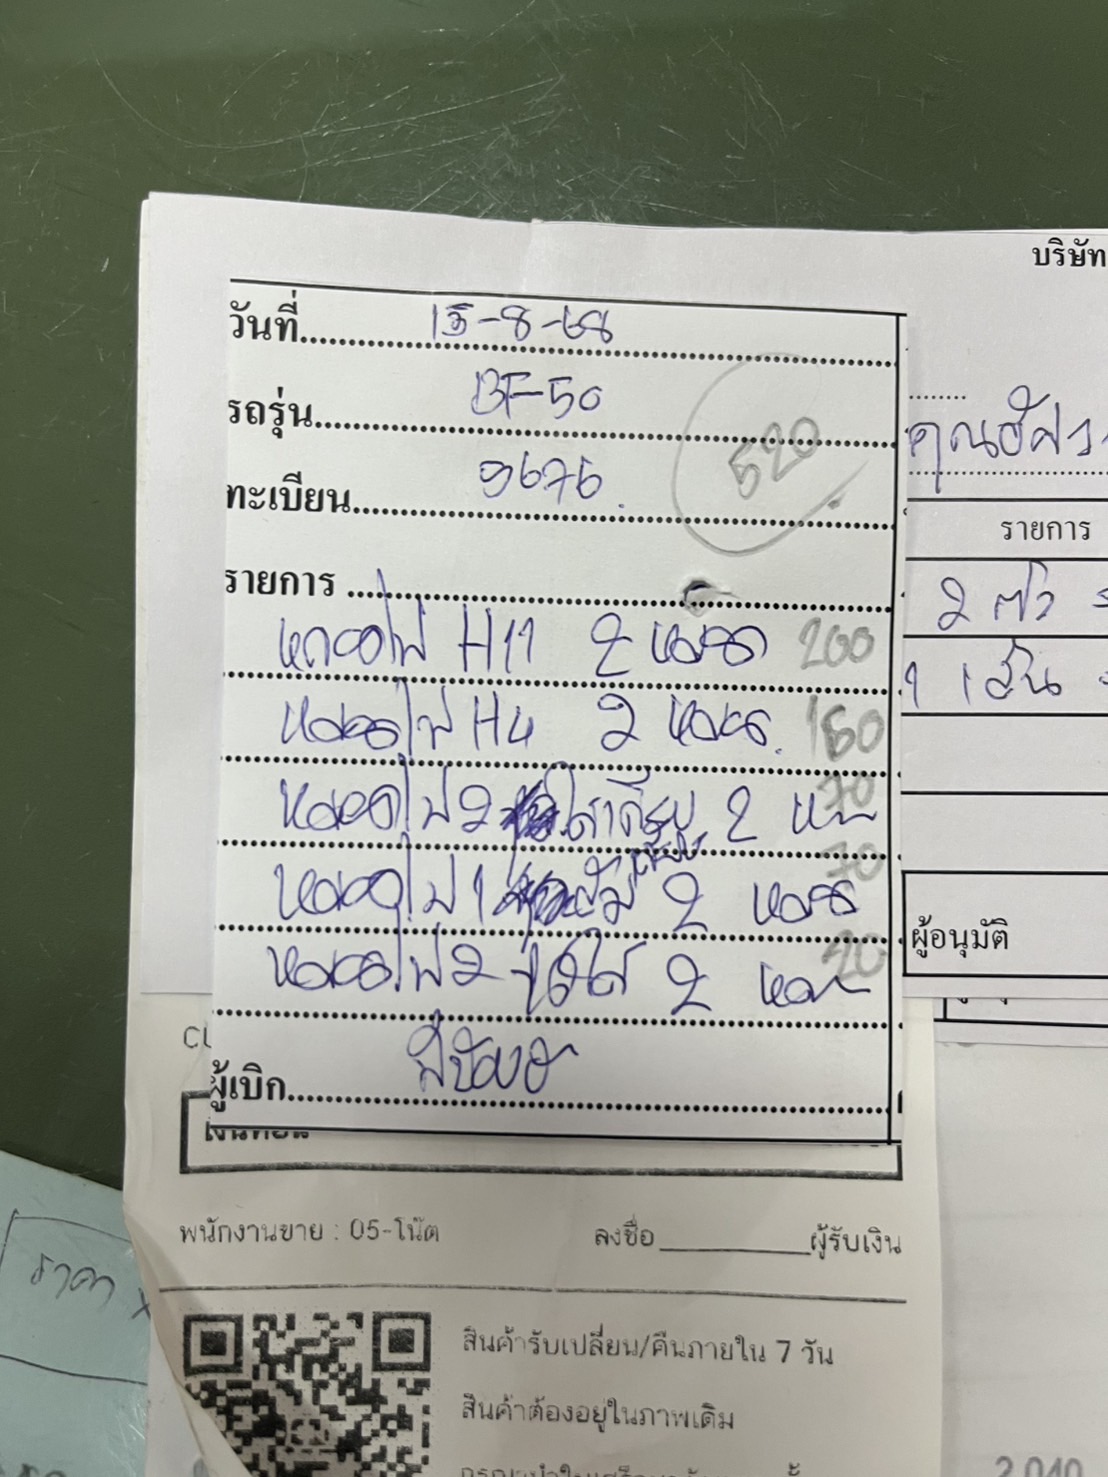 บริษัท
วันที่ 15-8-68
รถรุ่น BF-50
ทะเบียน 9676
520
รายการ
หลอดไฟ H11 2 หลอด 200
หลอดไฟ H4 2 หลอด 160
หลอดไฟ 2 ใสเสียบ 2 70
หลอดไฟ 1 ส้ม เสียบ 2 หลอด 70
หลอดไฟ 2 2 20
ผู้เบิก
รายการ
2 ตัว
1 เส้น
ผู้อนุมัติ
เงินทอน
พนักงานขาย : 05-โน๊ต
ลงชื่อ ผู้รับเงิน
ราคา
สินค้ารับเปลี่ยน/คืนภายใน 7 วัน
สินค้าต้องอยู่ในภาพเดิม
2,010